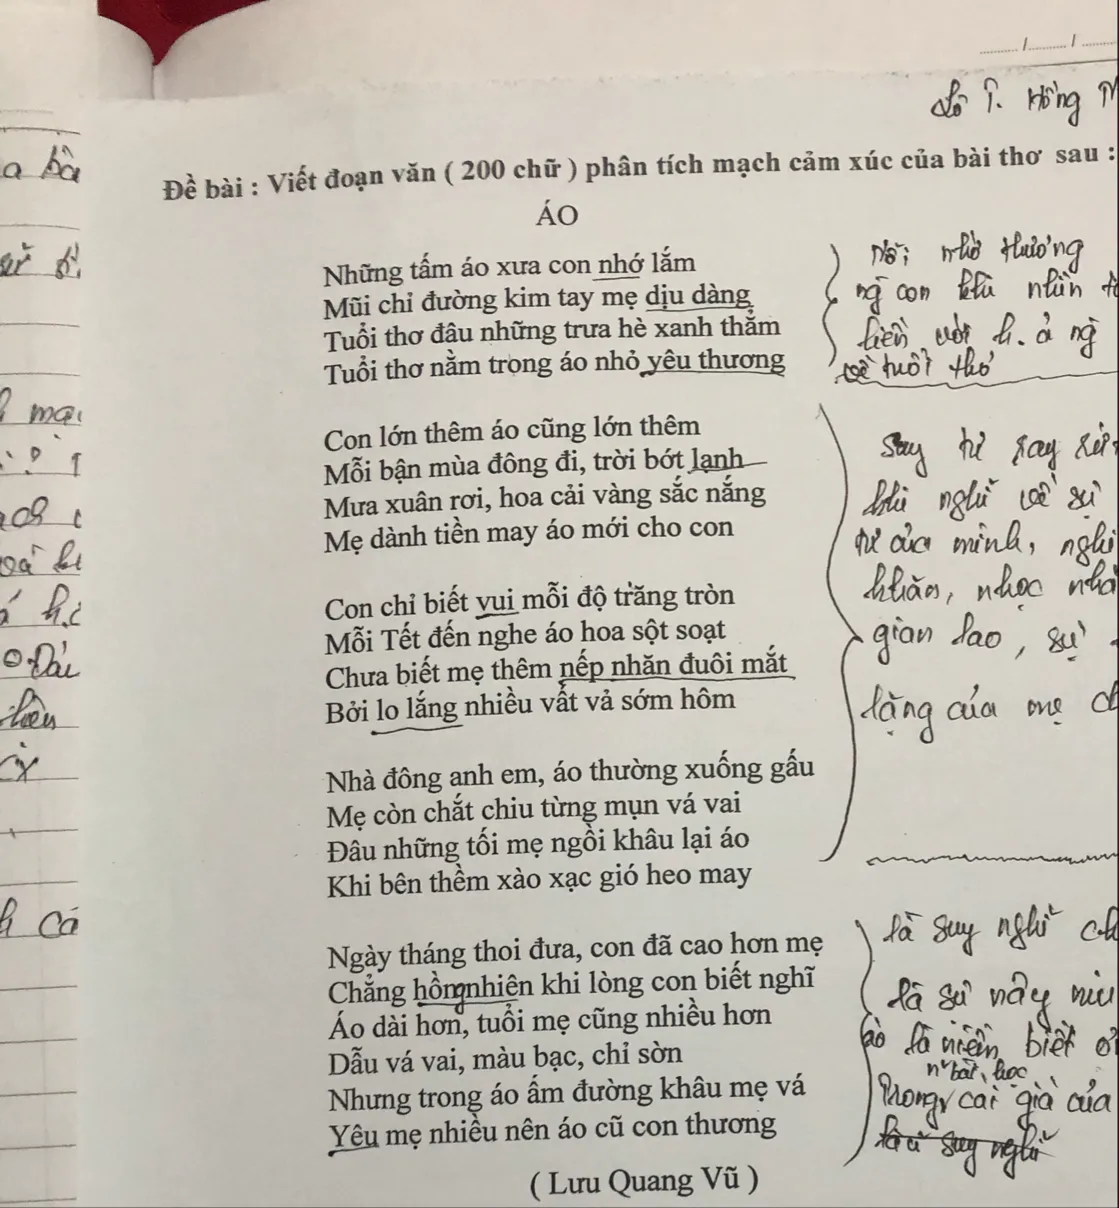 Hồng
Đề bài : Viết đoạn văn ( 200 chữ ) phân tích mạch cảm xúc của bài thơ sau :
ÁO
Những tấm áo xưa con nhớ lắm
Mũi chỉ đường kim tay mẹ dịu dàng
Tuổi thơ đâu những trưa hè xanh thẳm
Tuổi thơ nằm trong áo nhỏ yêu thương
Con lớn thêm áo cũng lớn thêm
Mỗi bận mùa đông đi, trời bớt lạnh
Mưa xuân rơi, hoa cải vàng sắc nắng
Mẹ dành tiền may áo mới cho con
Con chỉ biết vui mỗi độ trăng tròn
Mỗi Tết đến nghe áo hoa sột soạt
Chưa biết mẹ thêm nếp nhăn đuôi mắt
Bởi lo lắng nhiều vất vả sớm hôm
Nhà đông anh em, áo thường xuống gấu
Mẹ còn chắt chiu từng mụn vá vai
Đâu những tối mẹ ngồi khâu lại áo
Khi bên thềm xào xạc gió heo may
Ngày tháng thoi đưa, con đã cao hơn mẹ
Chẳng hồn nhiên khi lòng con biết nghĩ
Áo dài hơn, tuổi mẹ cũng nhiều hơn
Dẫu vá vai, màu bạc, chỉ sờn
Nhưng trong áo ấm đường khâu mẹ vá
Yêu mẹ nhiều nên áo cũ con thương
( Lưu Quang Vũ )
nhớ thương
con khi nhìn
liền với h.ả
về tuổi thơ
Suy tư
khi nghĩ về sự
của mình, nghi
khăn, nhọc nhằ
gian lao, sự
lặng của mẹ
là suy nghĩ
là sự nảy
là niềm biết ơ
bài học
Trong cái già của
suy nghĩ